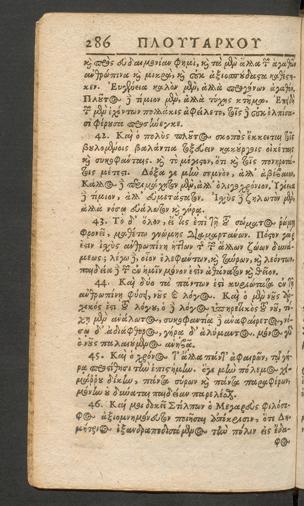 286 ΠΛΟΥΤΑΡΧΟΥ
καὶ πρὸς εὐδαιμονίαν φημὶ, καὶ τὰ μὲν ἄλλα τῶν ἀγαθῶν
ἀνθρώπινα καὶ μικρὰ, καὶ οὐκ ἀξιοσπούδαστα καθέστη-
κεν. Εὐγένεια καλὸν μὲν, ἀλλὰ προγόνων ἀγαθόν.
Πλοῦτος δὲ τίμιον μὲν, ἀλλὰ τύχης κτῆμα. Ἐπειδὴ
τῶν μὲν ἐχόντων πολλάκις ἀφείλετο, τοῖς δ' οὐκ ἐλπίσα-
σι φέρουσα προσήνεγκε.
42. Καὶ ὁ πολὺς πλοῦτος σκοπὸς ἔκκειται τοῖς
βουλομένοις βαλάντια τοξεύειν κακούργοις οἰκέταις
καὶ συκοφάνταις. καὶ τὸ μέγιστον, ὅτι καὶ τοῖς πονηροτά-
τοις μέτεστι. Δόξα γε μὴν σεμνὸν μὲν, ἀλλ' ἀβέβαιον.
Κάλλος δὲ περιμάχητον μὲν, ἀλλ' ὀλιγοχρόνιον. Ὑγίεια
δὲ τίμιον, ἀλλ' εὐμετάστατον. Ἰσχὺς δὲ ζηλωτὸν μὲν,
ἀλλὰ νόσῳ εὐάλωτον καὶ γήρᾳ.
43. Τὸ δ' ὅλον, εἴ τις ἐπὶ τῇ τοῦ σώματος ῥώμῃ
φρονεῖ, μαθέτω γνώμης διαμαρτάνων. Πόσον γάρ
ἐστιν ἰσχὺς ἀνθρωπίνη τῆς τῶν ἄλλων ζώων δυνά-
μεως; λέγω δὲ, οἷον ἐλεφάντων, καὶ ταύρων, καὶ λεόντων.
παιδεία δὲ τῶν ἐν ἡμῖν μόνον ἐστὶν ἀθάνατον καὶ θεῖον.
44. Καὶ δύο τὰ πάντων ἐστὶ κυριώτατα ἐν τῇ
ἀνθρωπίνῃ φύσει, νοῦς καὶ λόγος. Καὶ ὁ μὲν νοῦς ἀρ-
χικός ἐστι τοῦ λόγου, ὁ δὲ λόγος ὑπηρετικὸς τοῦ νοῦ, τύ-
χῃ μὲν ἀνάλωτος, συκοφαντίᾳ δὲ ἀναφαίρετος, νό-
σῳ δ' ἀδιάφθορος, γήρᾳ δ' ἀλύμαντος. μόνος γὰρ
ὁ νοῦς παλαιούμενος ἀνηβᾷ.
45. Καὶ ὁ χρόνος, τἄλλα πάντ' ἀφαιρῶν, τῷ γή-
ρᾳ προστίθησι τὴν ἐπιστήμην. ὅγε μὴν πόλεμος χει-
μάῤῥου δίκην, πάντα σύρων καὶ πάντα παραφέρων,
μόνην οὐ δύναται παιδείαν παρελέσθαι.
46. Καί μοι δοκεῖ Στίλπων ὁ Μεγαρεὺς φιλόσο-
φος ἀξιομνημόνευτον ποιῆσαι ἀπόκρισιν, ὅτε Δη-
μήτριος ἐξανδραποδισάμενος τὴν πόλιν εἰς ἔδα-
φος